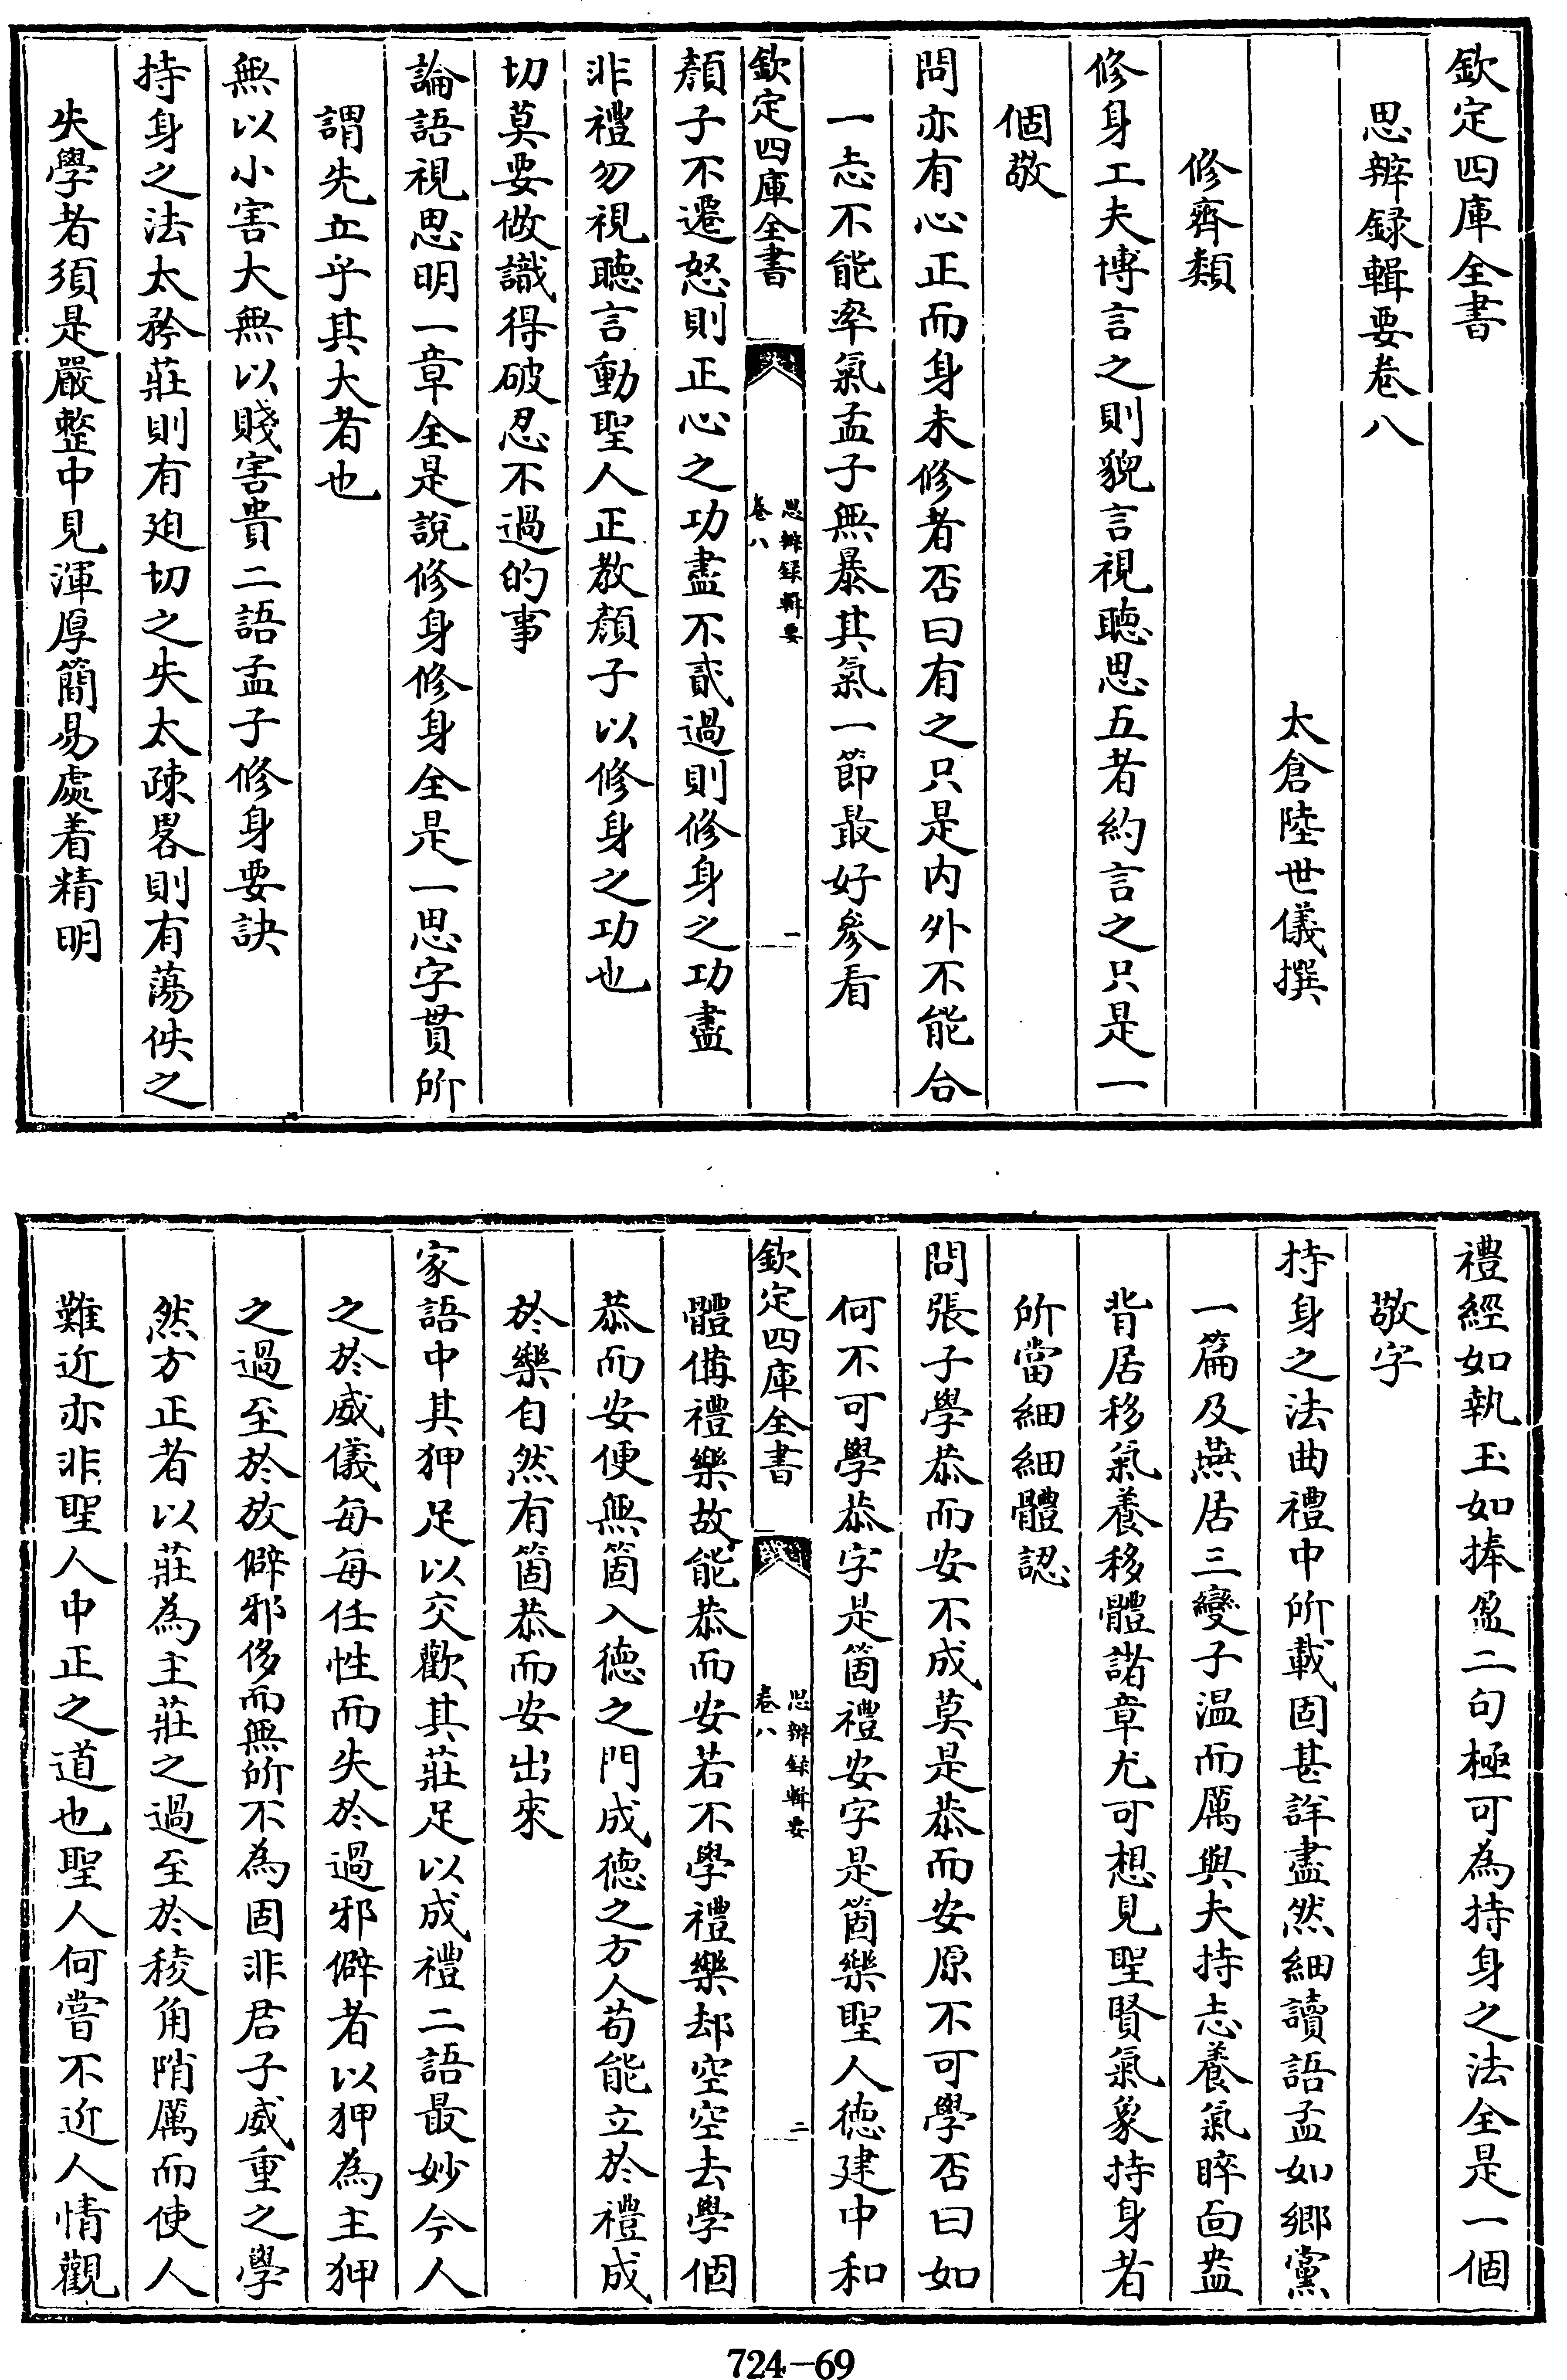 欽定四庫全書
思辨録輯要卷八
太倉陸世儀撰
修齊類
修身工夫博言之則貌言視聽思五者約言之只是一
個敬
問亦有心正而身未修者否曰有之只是内外不能合
一志不能率氣孟子無暴其氣一節最好參看
欽定四庫全書
思辨録輯要
卷八
一
顏子不遷怒則正心之功盡不貳過則修身之功盡
非禮勿視聽言動聖人正教顏子以修身之功也
切莫要做識得破忍不過的事
論語視思明一章全是說修身修身全是一思字貫所
謂先立乎其大者也
無以小害大無以賤害貴二語孟子修身要訣
持身之法太矜莊則有廹切之失太疎畧則有蕩佚之
失學者須是嚴整中見渾厚簡易處着精明
禮經如執玉如捧盈二句極可為持身之法全是一個
敬字
持身之法曲禮中所載固甚詳盡然細讀語孟如鄉黨
一篇及燕居三變子温而厲與夫持志養氣睟面盎
背居移氣養移體諸章尤可想見聖賢氣象持身者
所當細細體認
問張子學恭而安不成莫是恭而安原不可學否曰如
何不可學恭字是箇禮安字是箇樂聖人德建中和
欽定四庫全書
思辨録輯要
卷八
二
體備禮樂故能恭而安若不學禮樂却空空去學個
恭而安便無箇入德之門成德之方人苟能立於禮成
於樂自然有箇恭而安出來
家語中其狎足以交歡其莊足以成禮二語最妙今人
之於威儀每每任性而失於過邪僻者以狎為主狎
之過至於放僻邪侈而無所不為固非君子威重之學
然方正者以莊為主莊之過至於稜角陗厲而使人
難近亦非聖人中正之道也聖人何嘗不近人情觀
724-69